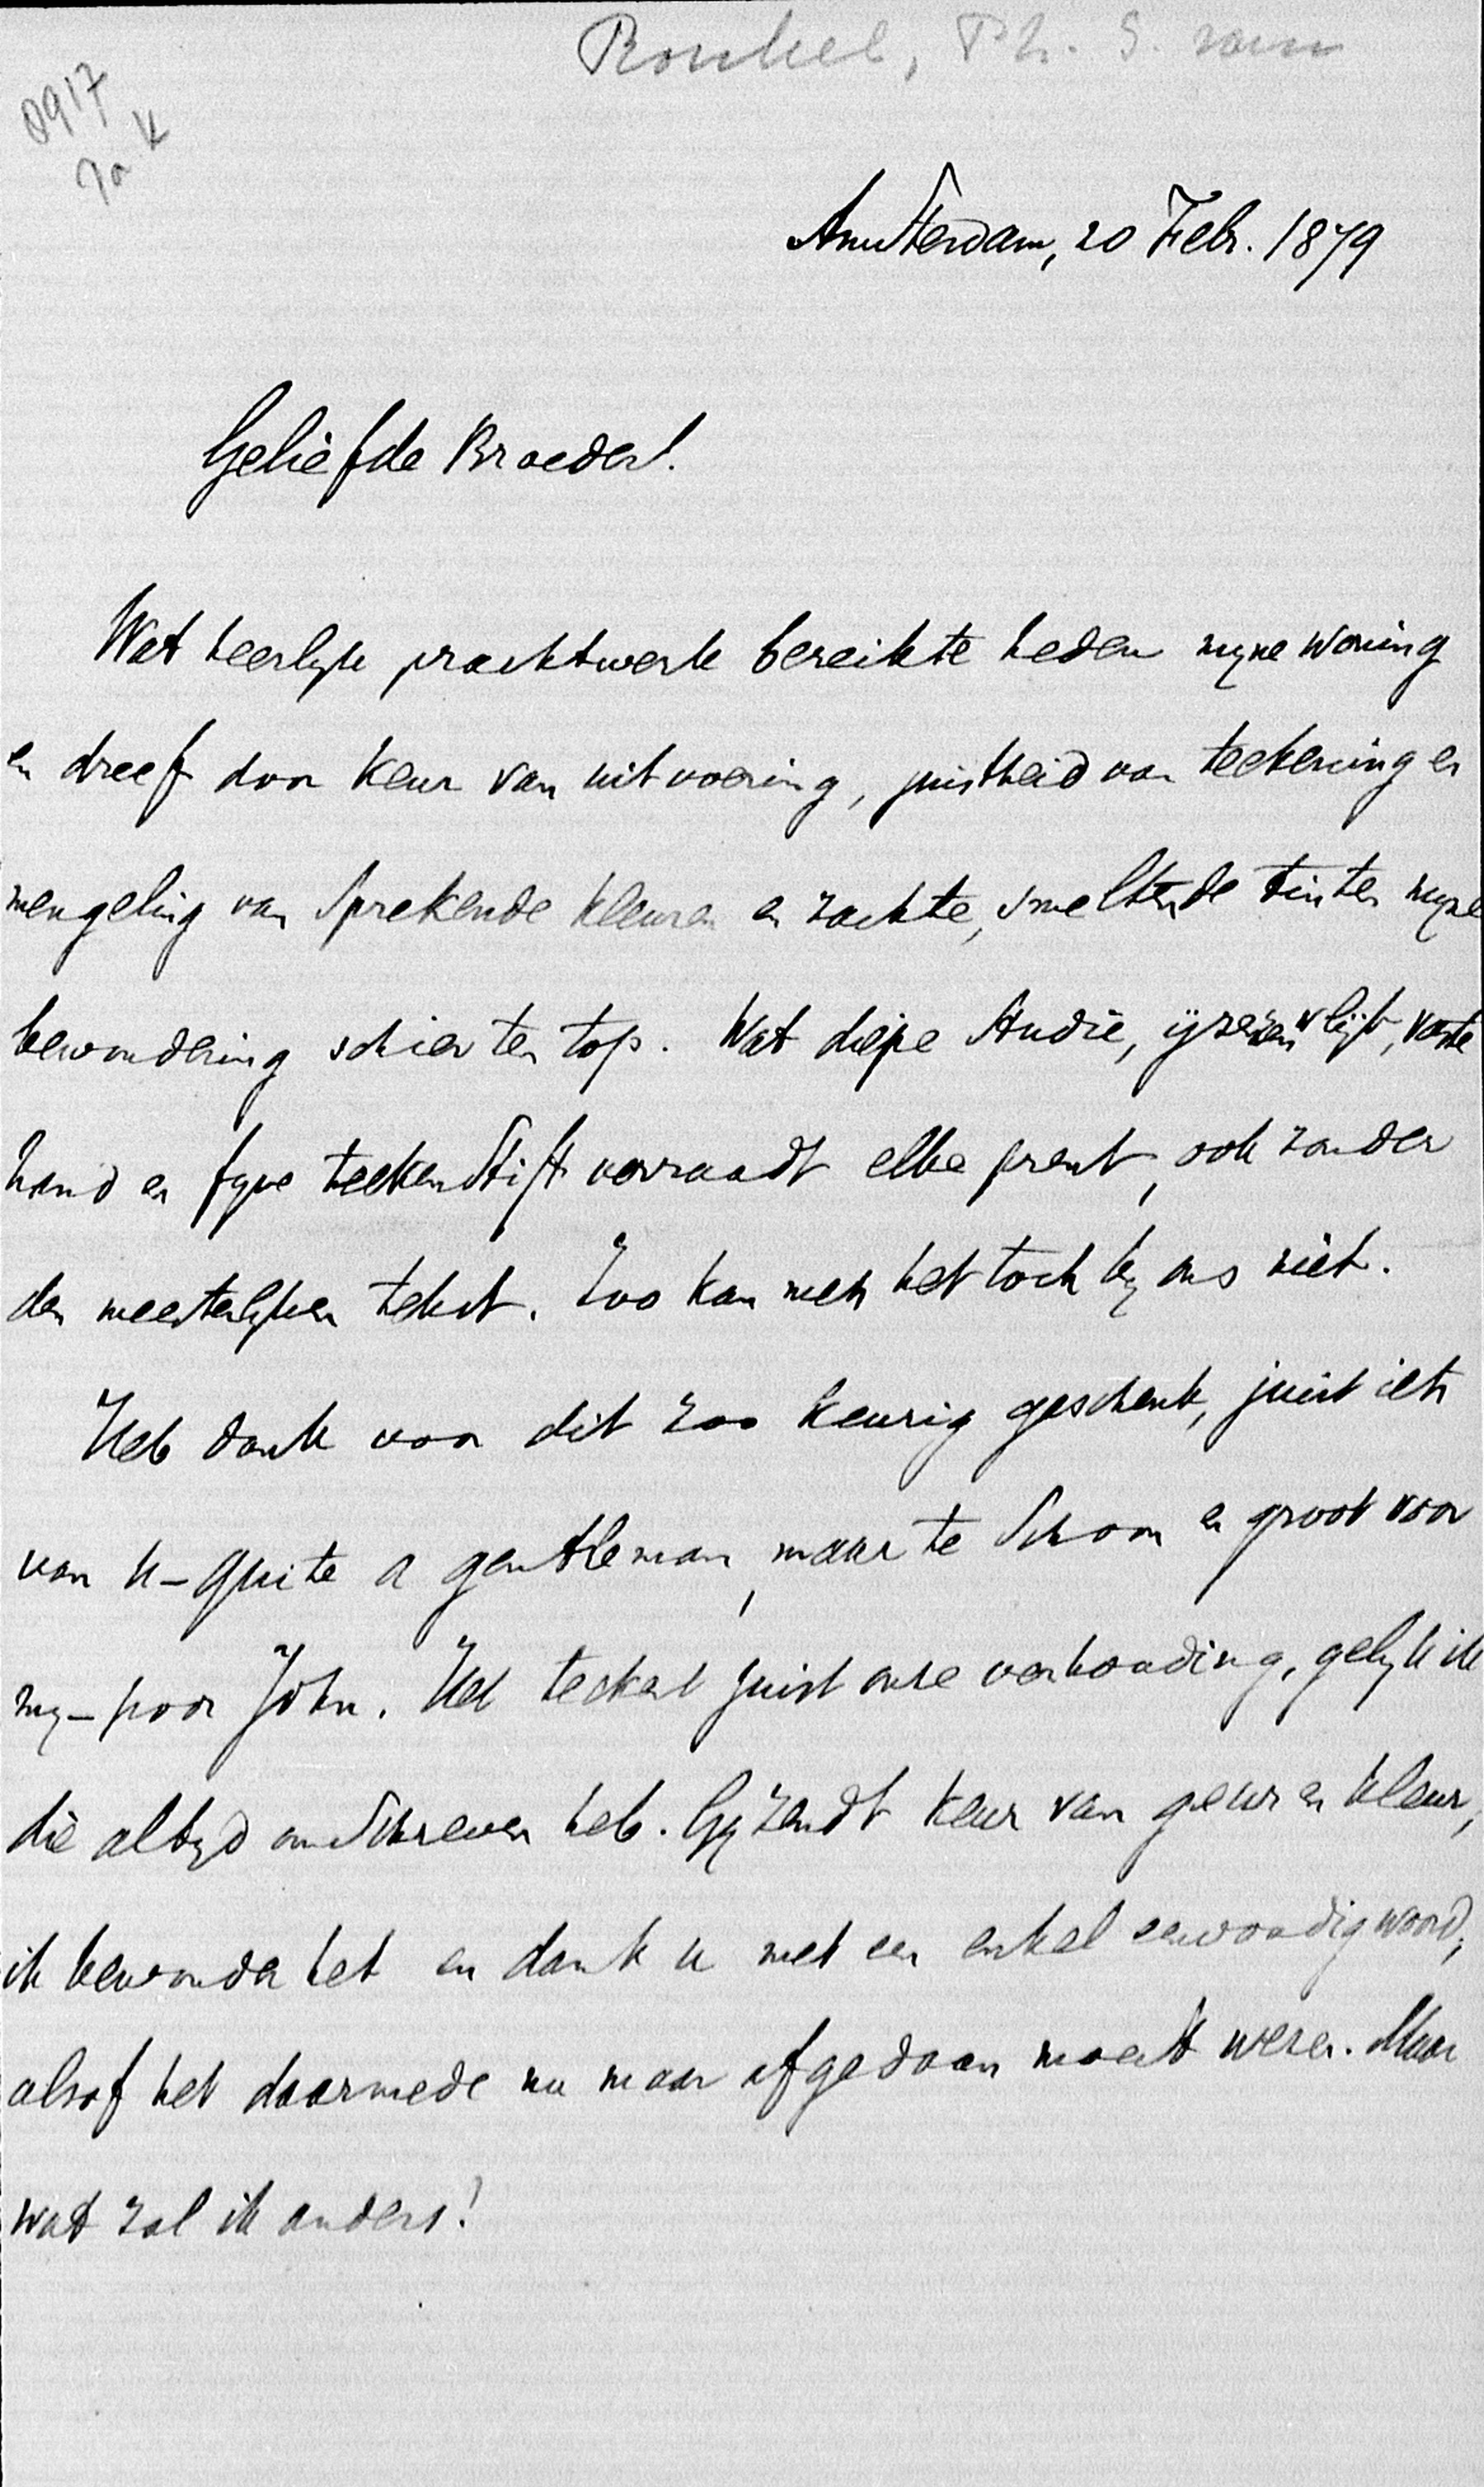 Ronkel, Ph. S. van
0917
Ja K
Amsterdam, 20 Febr. 1879
Geliefde Broeder!
Wat heerlyk prachtwerk bereikte heden myne woning
en dreef door keur van uitvoering, juistheid van teekening en
mengeling van sprekende kleuren en zachte, smeltende tinten myne
bewondering schier ten top. Wat diepe studie, ijzeren vlijt, vaste
hand en fyne teekenstift verraadt elke prent, ook zonder
den meesterlyken tekst. Zoo kan men het toch by ons niet.
Heb dank voor dit zoo keurig geschenk, juist iets
van u - quite a gentleman, maar te schoon en groot voor
my - poor John. Het teekent juist onze verhouding, gelyk ik
die altyd omschreven heb. Gy zendt keur van geur en kleur,
ik bewonder het en dank u met een enkel eenvoudig woord,
alsof het daarmede nu maar afgedaan moest wezen. Maar
wat zal ik anders!